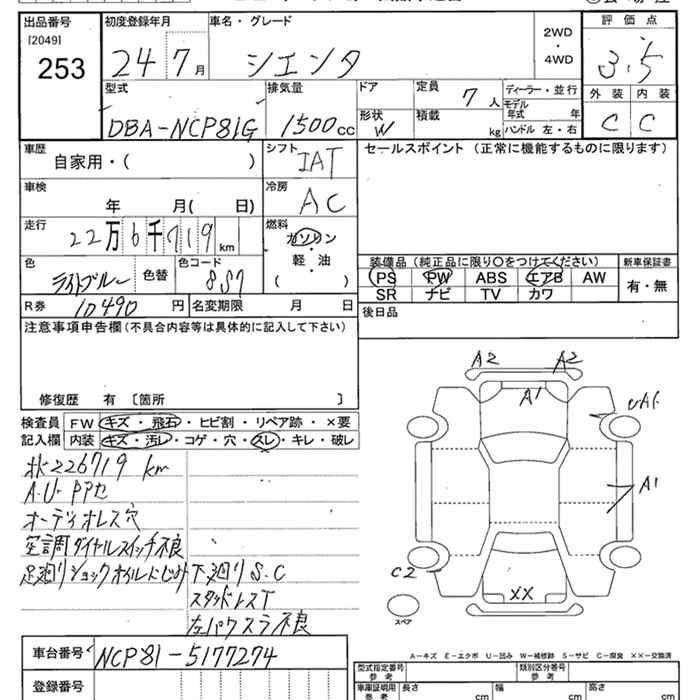 出品番号 初度登録年月 車名・グレード 評価点
[2049]
253
24 7月
シエンタ
2WD
・
4WD
3.5
外装 内装
C C
型式 排気量 ドア 定員 7人 ディーラー・並行
DBA-NCP81G 1500cc
形状 W 積載 kg
モデル年式 年
ハンドル 左・右
車歴 自家用・( )
シフト IAT
セールスポイント (正常に機能するものに限ります)
車検 年 月( 日)
冷房 AC
走行 22万6千719km
燃料 ガソリン
・
軽・油
( )
色 ライトブルー 色替 色コード 8S7
装備品 (純正品に限り○をつけてください) 新車保証書
PS PW ABS エアB AW
SR ナビ TV カワ
有・無
R券 10490円 名変期限 月 日
後日品
注意事項申告欄(不具合内容等は具体的に記入して下さい)
修復歴 有 [箇所 ]
検査員記入欄
FW キズ・飛石・ヒビ割・リペア跡・×要
内装 キズ・汚レ・コゲ・穴・スレ・キレ・破レ
226719 km
オーディオレス穴
空調ダイヤルスイッチ不良
足廻りショックオイルにじみ 下廻りS.C
スタッドレスT
左パワスラ不良
A2 A2
A1
A1
C2
XX
スペア
A-キズ E-エクボ U-凹み W-補修跡 S-サビ C-腐食 XX-交換済
車台番号 NCP81-5177274
登録番号
型式指定番号 参考 類別区分番号 参考
車庫証明用 参考 長さ cm 幅 cm 高さ cm